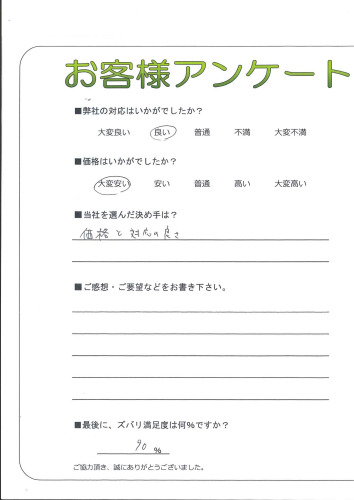 お客様アンケート
■弊社の対応はいかがでしたか？
大変良い 良い 普通 不満 大変不満
■価格はいかがでしたか？
大変安い 安い 普通 高い 大変高い
■当社を選んだ決め手は？
価格と対応の良さ
■ご感想・ご要望などをお書き下さい。
■最後に、ズバリ満足度は何％ですか？
90 %
ご協力頂き、誠にありがとうございました。